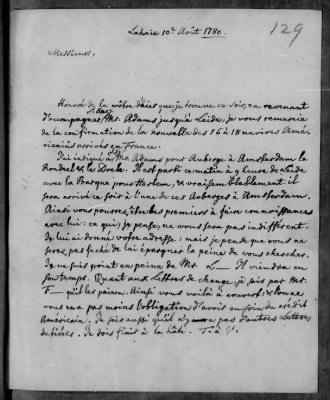 129
Lahaie 10e. Août 1780.
Messieurs,
Honoré de la vôtre d'hier, que je trouve ce soir, en revenant
d'accompagner Mr. Adams jusqu'à Leide, je vous remercie
de la confirmation de la nouvelle des 16 à 18 navires Amé-
ricains arrivés en France.
J'ai indiqué à Mr. Adams pour Auberge à Amsterdam le
Rondeel & le Doele. Il est parti ce matin à 9 heures de Leide
avec la Barque pour Harlem, & vraisemblablement il
sera arrivé ce soir à l'une de ces Auberges à Amsterdam.
Ainsi vous pouvez être les premiers à faire connoissance
avec lui: ce qui, je pense, ne vous sera pas indifférent.
Je lui ai donné votre adresse: mais je pense que vous ne
serez pas faché de lui épargner la peine de vous chercher.
Je ne suis point en peine de Mr. L—. Il viendra en
son temps. Quant aux Lettres de change, je sais par Mr.
F— qu'il les paiera. Ainsi vous voilà à couvert; & l'on ne
vous en a pas moins l'obligation d'avoir eu soin du crédit
Américain. Je sais aussi qu'il n'y a pas d'autres Lettres
de tirées. Je dois finir à la hâte. T. à V.